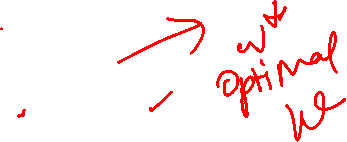 w*
optimal